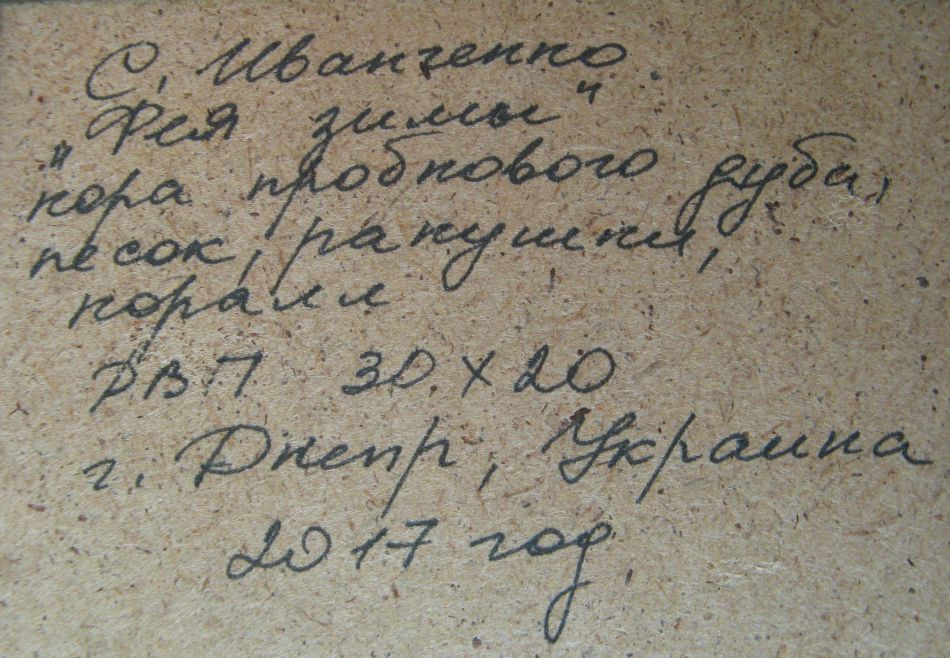 С. Иванченко.
„Фея зимы"
кора пробкового дуба,
песок, ракушки,
коралл
ДВП 30 х 20
г. Днепр, Украина
2017 год.